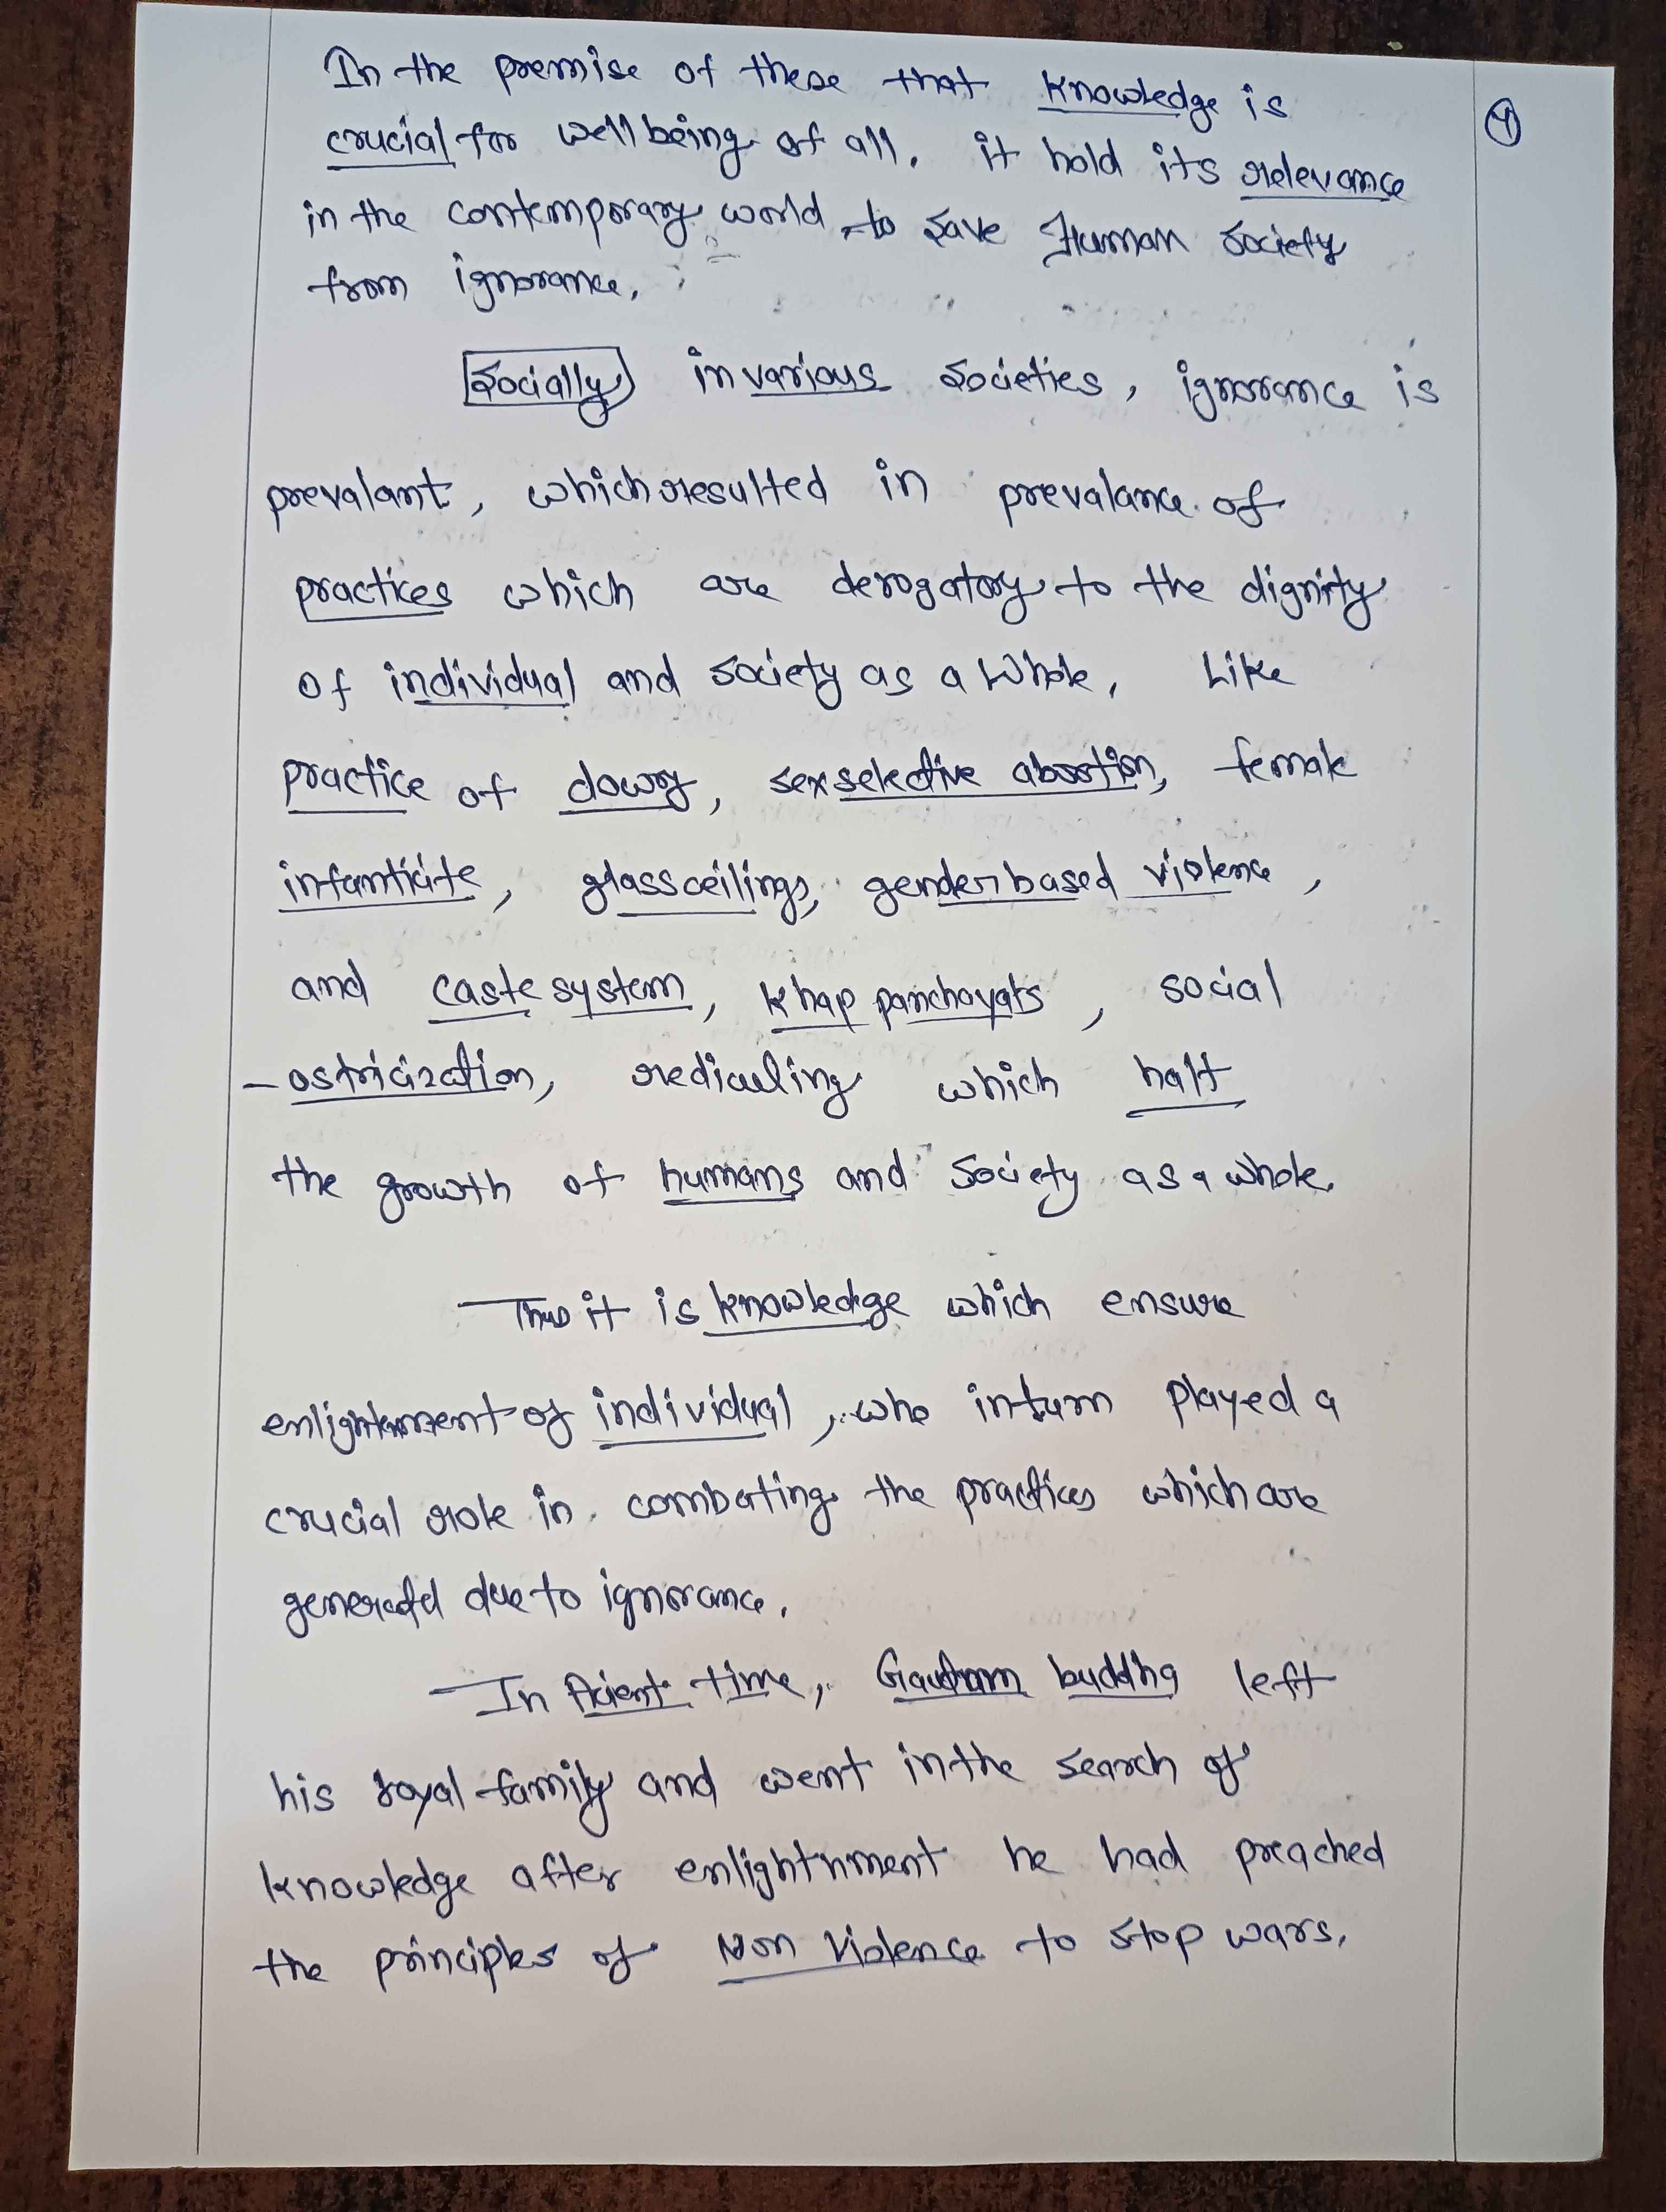 In the premise of these that Knowledge is
crucial for well being of all. it hold its relevance
in the contemporary world to save Human society
from ignorance.
4
Socially in various societies, ignorance is
prevalant, which resulted in prevalance of
practices which are derogatory to the dignity
of individual and society as a whole, Like
practice of dowry, sex selective abortion, female
infanticite, glass ceilings, gender based violence,
and caste system, Khap panchayats, social
ostricization, rediculing which halt
the growth of humans and society as a whole.
Thus it is knowledge which ensure
enlightenment of individual, who inturn played a
crucial role in combating the practices which are
generated due to ignorance.
In Acient time, Gautham buddha left
his royal family and went in the search of
knowledge after enlightnment he had preached
the principles of Non Violence to stop wars.